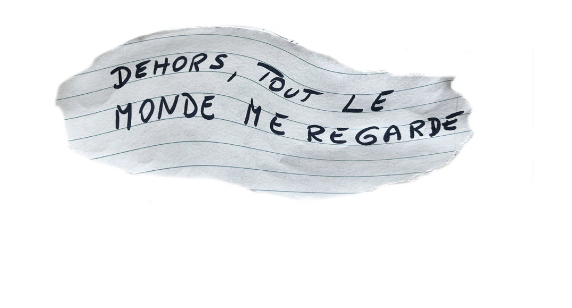 DEHORS, TOUT LE
MONDE ME REGARDE